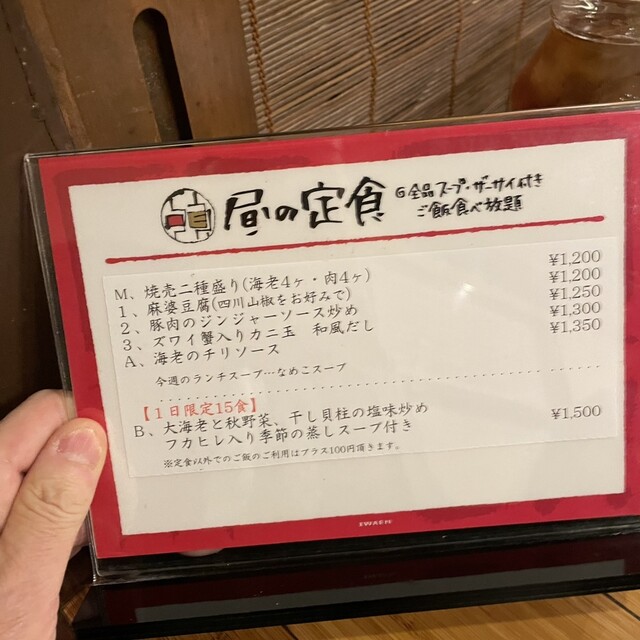 昼の定食
全品スープ・ザーサイ付き
ご飯食べ放題
M、焼売二種盛り(海老4ヶ・肉4ヶ) ¥1,200
1、麻婆豆腐(四川山椒をお好みで) ¥1,200
2、豚肉のジンジャーソース炒め ¥1,250
3、ズワイ蟹入りカニ玉 和風だし ¥1,300
A、海老のチリソース ¥1,350
今週のランチスープ…なめこスープ
【1日限定15食】
B、大海老と秋野菜、干し貝柱の塩味炒め ¥1,500
フカヒレ入り季節の蒸しスープ付き
※定食以外でのご飯のご利用はプラス100円頂きます。